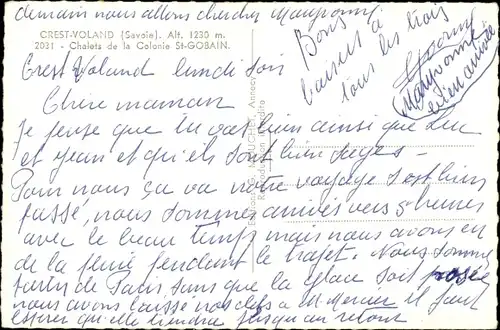 demain nous allons chercher Maryvonne
CREST-VOLAND (Savoie). Alt. 1230 m.
2031 - Chalets de la Colonie St-GOBAIN.
Bons
baisers à
tous les trois
Maryvonne
bien arrivée
Crest Voland lundi soir
Chère maman
Je pense que tu vas bien ainsi que Luc
et Jean et qu'ils sont bien sages -
Pour nous ça va notre voyage s'est bien
passé, nous sommes arrivés vers 5 heures
avec le beau temps mais nous avons eu
de la pluie pendant le trajet. Nous sommes
partis de Paris sans que la glace soit posée
nous avons laissé nos clefs à M. Mercier il faut
espérer qu'elle tiendra jusqu'au retour
Reproduction interdite